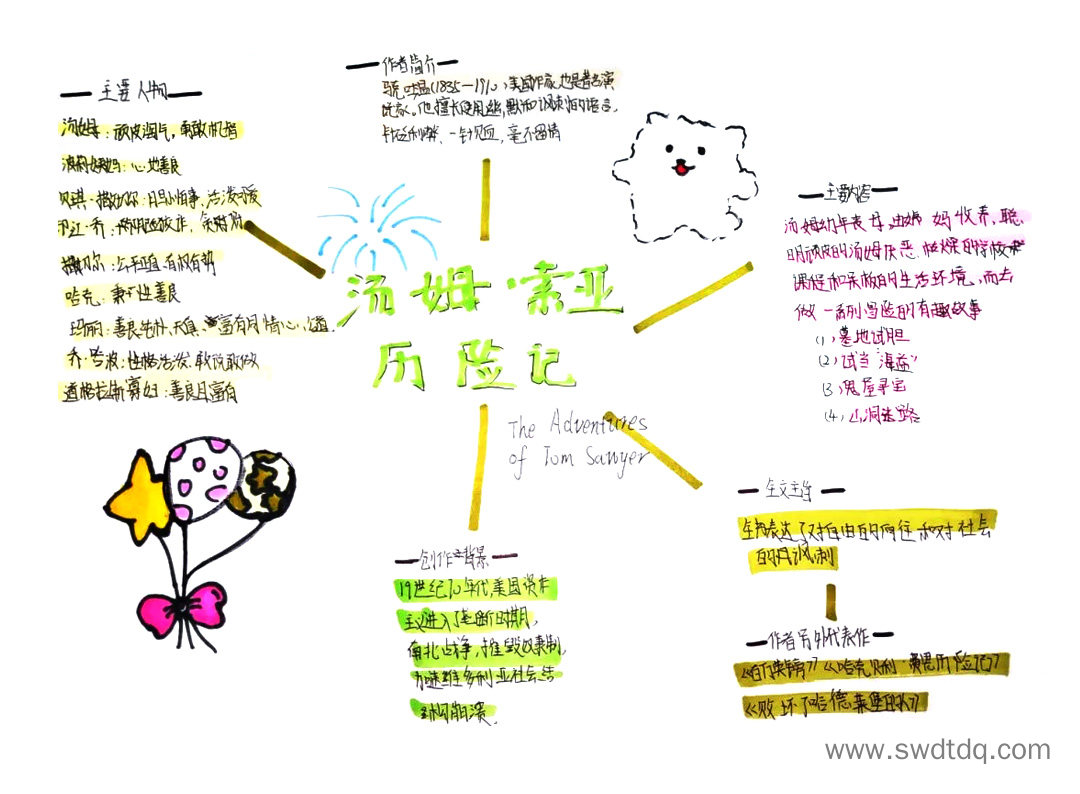 主要人物
汤姆：顽皮淘气，勇敢机智
波莉姨妈：心地善良
贝琪·撒切尔：胆小怕事，活泼可爱
撒切尔：公平正直，有权有势
哈克：善良
玛丽：善良、天真、富有同情心、
乔·哈波：性格活泼、敢说敢做
道格拉斯寡妇：善良且富有
作者简介
马克·吐温(1835—1910)美国作家,也是著名演
说家。他擅长使用幽默和讽刺的语言,
针砭时弊、一针见血，毫不留情
汤姆·索亚
历险记
The Adventures
of Tom Sawyer
主要内容
汤姆幼年丧母,由姨妈收养,聪
明顽皮的汤姆厌恶枯燥的学校
课程和呆板的生活环境，而去
做一系列冒险的有趣故事
(1)墓地试胆
(2)试当"海盗"
(3)鬼屋寻宝
(4)山洞迷路
全文主旨
全书表达了对自由的向往和对社会
的讽刺
作者另外代表作
《百万英镑》《哈克贝利·费恩历险记》
《败坏了哈德莱堡的人》
创作背景
19世纪70年代,美国资本
主义进入了垄断时期,
南北战争,摧毁奴隶制,
加速维多利亚社会结
构崩溃.
www.swdtdq.com